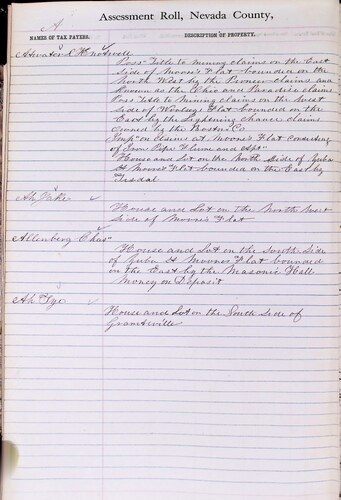 A
Assessment Roll, Nevada County,
NAMES OF TAX PAYERS.
DESCRIPTION OF PROPERTY.
Atwater &
Poss Title to mining claims on the East
Side of Moores Flat bounded on the
North West by the Pioneer claims and
Known as the Ohio and Paradise claims
Poss Title to Mining claims on the West
side of Woolsey Flat bounded on the
East by the Lightening chance claims
owned by the Boston Co
Imps on claims at Moores Flat consisting
of Iron Pipe Flume and
House and Lot on the North Side of Yuba
St Moores Flat bounded on the East by
Tisdal
Ah Jake
House and Lot on the North West
Side of Moores Flat
Altenberg Chas
House and Lot on the South Side
of Yuba St Moores Flat bounded
on the East by the Masonic Hall
Money on Deposit
Ah
House and Lot on the South side of
Graniteville